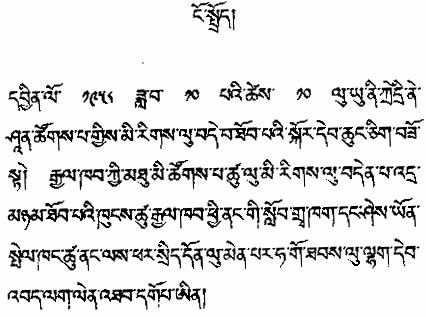 ངོ་སྤྲོད།
དབྱིན་ལོ་ ༡༩༤༨ ཟླ་བ་ ༡༠ པའི་ཚེས་ ༡༠ ལུ་ཡུ་ནི་ཀྲེདྲི་ནེ་
ཤཱན་ཚོགས་པ་གྱིས་མི་རིགས་ལུ་བདེ་བ་ཐོབ་པའི་སྐོར་དེབ་ཆུང་ཅིག་བཟོ་
སྟེ། རྒྱལ་ཁབ་ཀྱི་མཐུ་མི་ཚོགས་པ་ཚུ་ལུ་མི་རིགས་ལུ་བདེན་པ་འདྲ་
མཉམ་ཐོབ་པའི་ཁུངས་ཚུ་རྒྱལ་ཁབ་ཕྱི་ནང་གི་སློབ་གྲྭ་ཁག་དང་ཤེས་ཡོན་
སྤེལ་ཁང་ཚུ་ནང་ལས་ཕར་སྲིད་དོན་ལུ་མེན་པར་ཧ་གོ་ཐབས་ལུ་ལྷག་དེབ་
འབད་ལག་ལེན་འཐབ་དགོཔ་ཨིན།